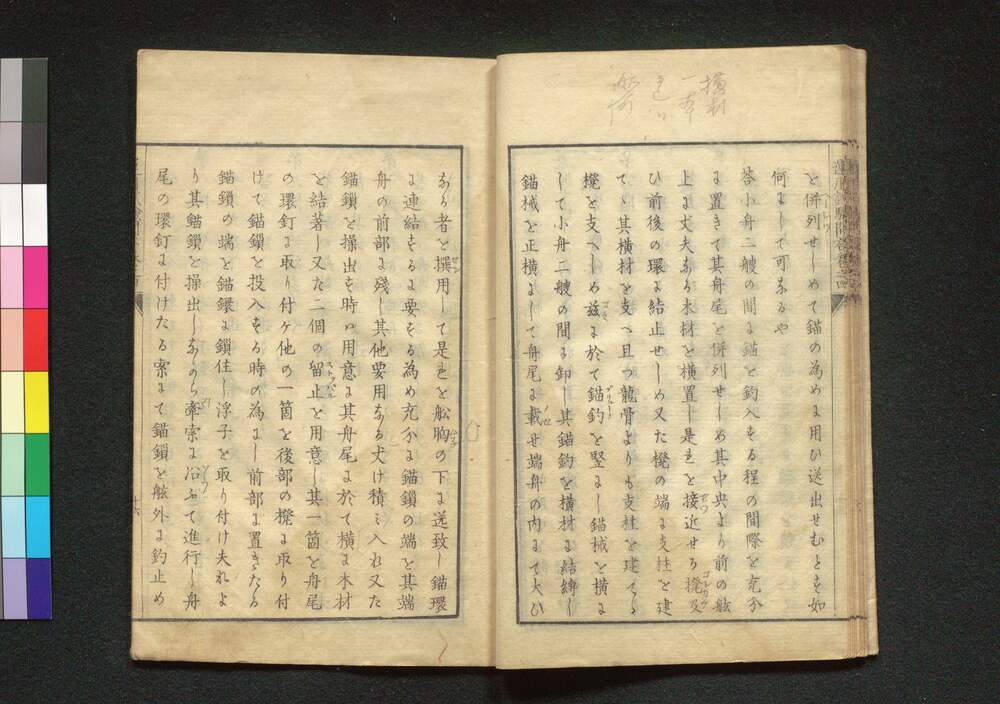 と併列せしめて錨の為めに用ひ送出せむとを如
何にして可なるや
答小舟二艘の間に錨を釣入をる程の間際を充分
に置きて其舟尾を併列せしめ其中央より前の舷
上に丈夫なる木材を横置し是ぇを接近せる櫈及
ひ前後の環に結止せしめ又た櫈の端に支柱を建
て、其横材を支へ且つ龍骨よりも支柱を建てゝ
櫈を支へしめ茲に於て錨釣を竪にし錨械を横に
して小舟二艘の間に卸し其錨釣を横材に結縛し
錨械を正横にして舟尾に載せ端舟の内にて大ひ
なる者を撰用して是ぇを舩胸の下に送致し錨環
に連結をるに要をる為め充分に錨鎖の端を其端
舟の前部に残し其他要用なる丈け積み入れ又た
錨鎖を操出を時は用意に其舟尾に於て横に木材
を結著し又た二個の留止を用意し其一箇を舟尾
の環釘に取り付ヶ他の一箇を後部の櫈に取り付
けて錨鎖を投入をる時の為にし前部に置きたる
錨鎖の端を錨鐶に鎖住し浮子を取り付け夫れよ
り其錨鎖を操出しながら牽索に沿ふて進行し舟
尾の環釘に付けたる索にて錨鎖を舷外に釣止め